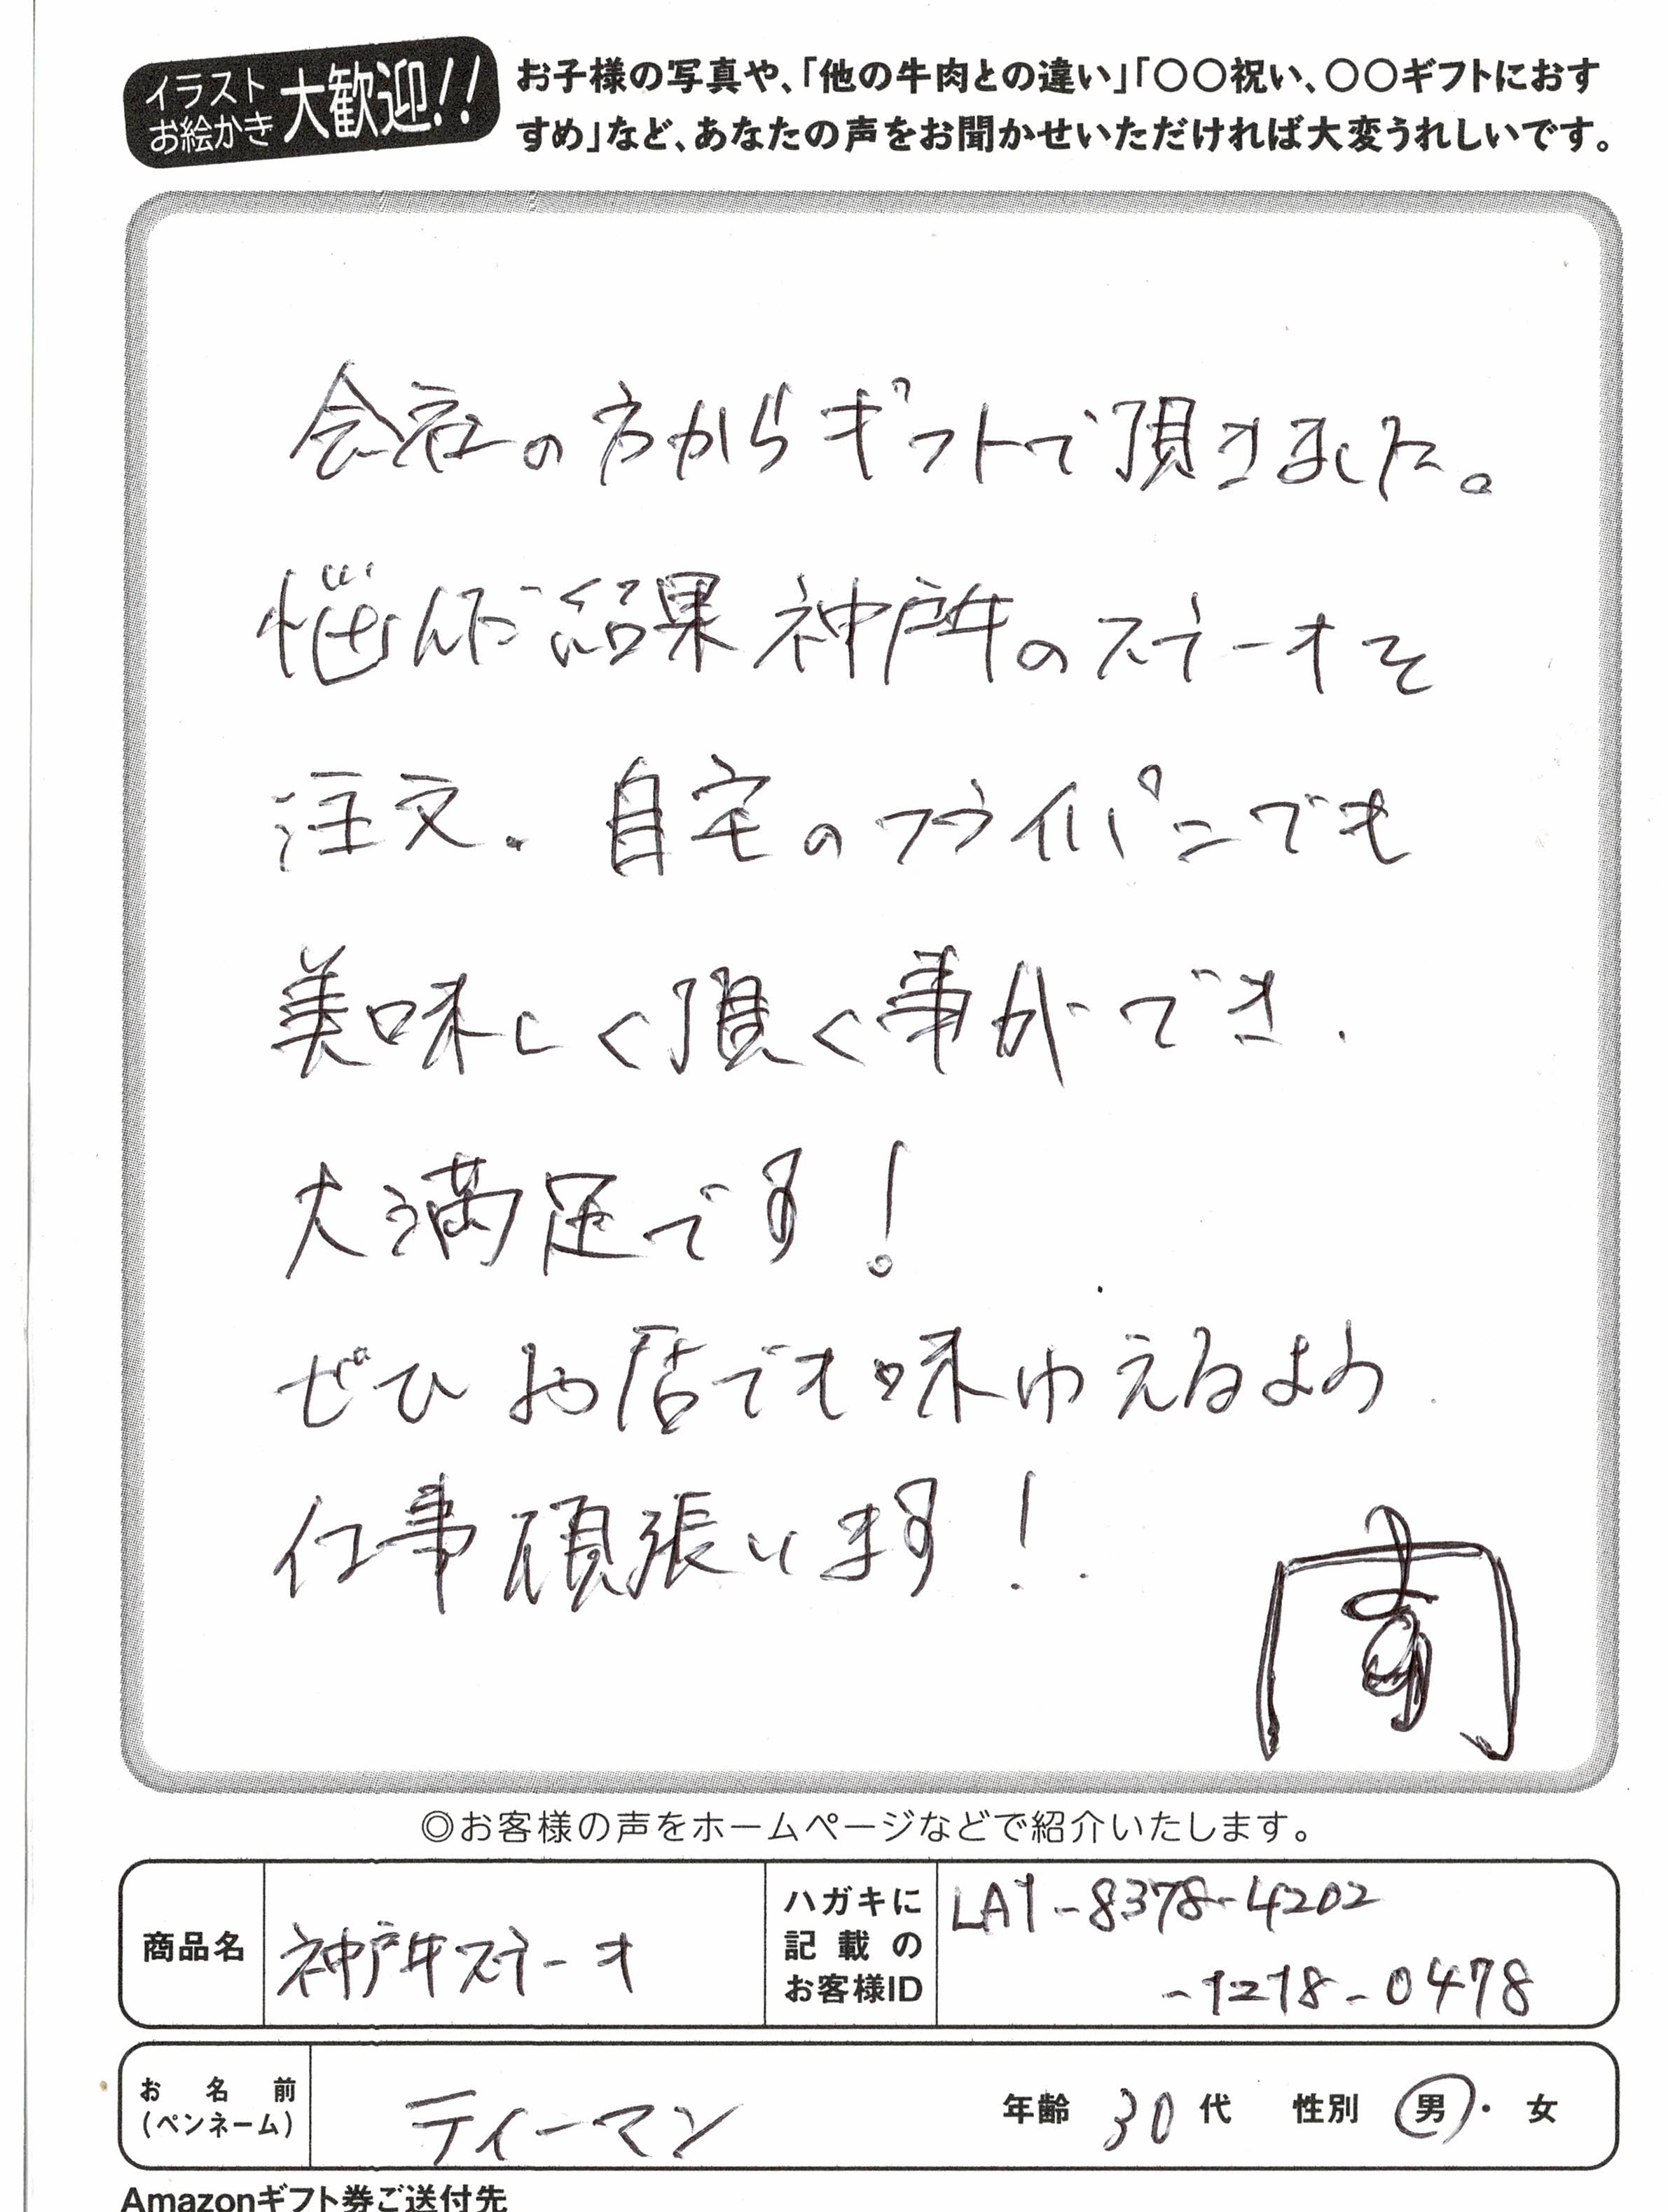 イラスト
お絵かき
大歓迎!!
お子様の写真や、「他の牛肉との違い」「〇〇祝い、〇〇ギフトにおす
すめ」など、あなたの声をお聞かせいただければ大変うれしいです。
会社の方からギフトで頂きました。
悩んだ結果神戸牛のステーキを
注文。自宅のフライパンでも
美味しく頂く事ができ、
大満足です!
ぜひお店でも味わえるよう
仕事頑張ります!
◎お客様の声をホームページなどで紹介いたします。
商品名
神戸牛ステーキ
ハガキに
記載の
お客様ID
LA1-8378-4202
-1218-0478
お名前
(ペンネーム)
ティーマン
年齢 30代 性別 男・女
Amazonギフト券ご送付先